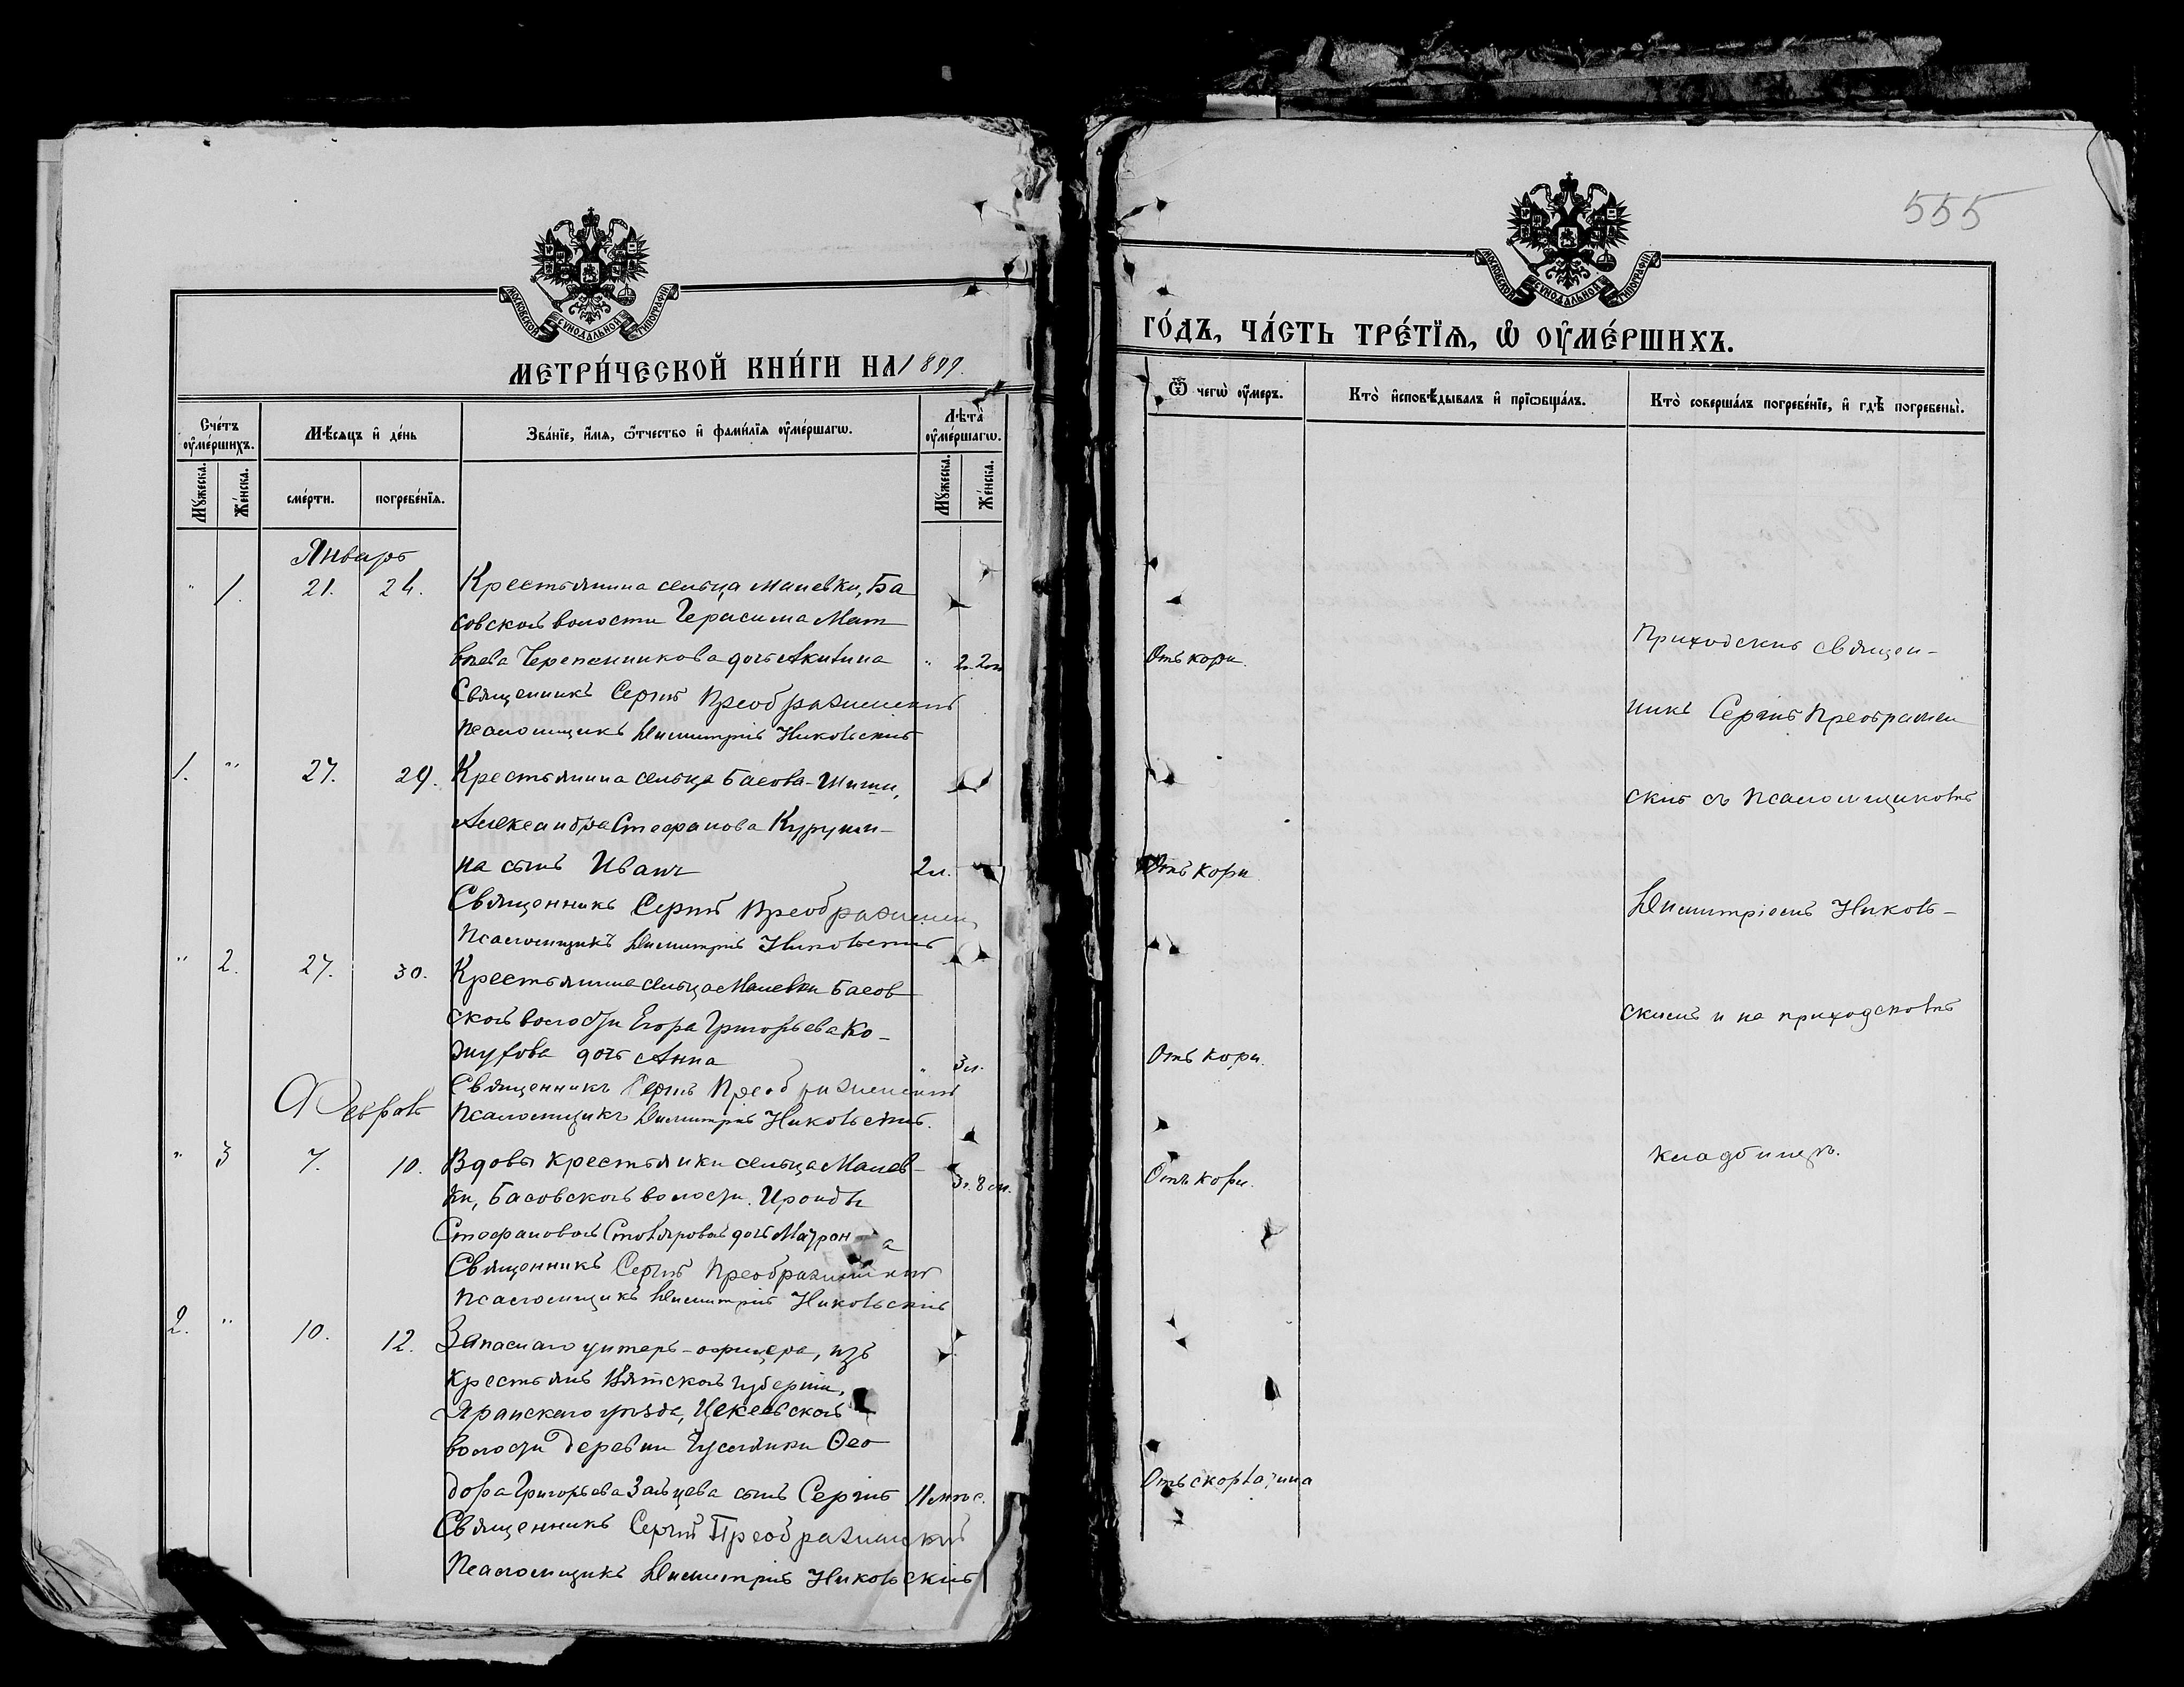 555
МОСКОВСКОЙ СѴНОДАЛЬНОЙ ТИПОГРАФІИ
МЕТРИ́ЧЕСКОЙ КНИ́ГИ НА 1899.
Сче́тъ ᲂу҆ме́ршихъ.
Мꙋ́жеска.
Же́нска.
Мѣ́сяцъ и҆ де́нь
сме́рти.
погребе́нїѧ.
Зва́нїе, и҆́мѧ, ѻ҆́тчество и҆ фами́лїѧ ᲂу҆ме́ршагѡ.
Лѣ́та ᲂу҆ме́ршагѡ.
Мꙋ́жеска.
Же́нска.
Январь
" 1. 21. 24. Крестьянина сельца Малевки, Ба
совской волости Герасима Мат
вѣева Черепенникова дочь Акилина " 2г. 2м
Священникъ Сергій Преображенскій
Псаломщикъ Димитрій Никольскій
1. " 27. 29. Крестьянина сельца Басова-
Александра Стефанова
на сынъ Иванъ 2л.
Священникъ Сергій Преображенск
Псаломщикъ Димитрій Никольскій
" 2. 27. 30. Крестьянина сельца Малевки Басов
ской волости Егора Григорьева Ко-
жухова дочь Анна " 3л.
Священникъ Сергій Преображенскій
Февраль
Псаломщикъ Димитрій Никольскій.
" 3 7. 10. Вдовы крестьянки сельца Малев-
ки, Басовской волости. Ироиды
Стефановой Столяровой дочь Матрона 3г. 8м.
Священникъ Сергій Преображенскій
Псаломщикъ Димитрій Никольскій
2. " 10. 12. Запаснаго унтеръ-офицера, изъ
крестьянъ Вятской губерніи,
Яранскаго уѣзда,
волости деревни Ѳео
дора Григорьева Зайцева сынъ Сергій 11 мѣс.
Священникъ Сергій Преображенскій
Псаломщикъ Димитрій Никольскій
МОСКОВСКОЙ СѴНОДАЛЬНОЙ ТИПОГРАФІИ
ГО́ДЪ, ЧА́СТЬ ТРЕ́ТЇѦ, Ѡ҆ ОУ҆МЕ́РШИХЪ.
Ѿ чегѡ̀ ᲂу҆́меръ.
Кто̀ и҆сповѣ́дывалъ и҆ прїѡбща́лъ.
Кто̀ соверша́лъ погребе́нїе, и҆ гдѣ̀ погребены̀.
Отъ кори.
Отъ кори
Отъ кори.
Отъ кори.
Отъ скорбалина
Приходскій священ-
никъ Сергій Преображен
скій съ псаломщикомъ
Димитріемъ Николь-
скимъ и на приходскомъ
кладбищѣ.